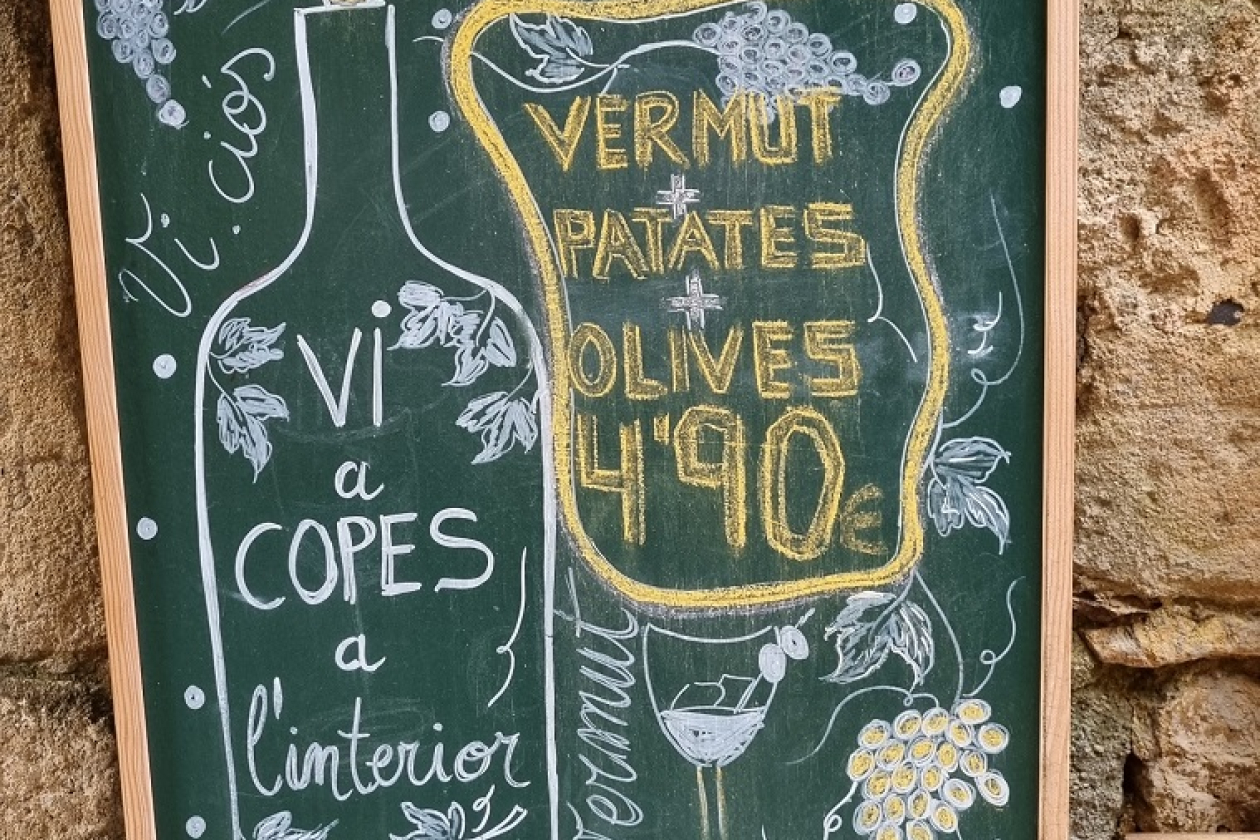 Vi.ciós
Vi
a
COPES
a
l'interior
VERMUT
+
PATATES
+
OLIVES
4'90€
Vermut